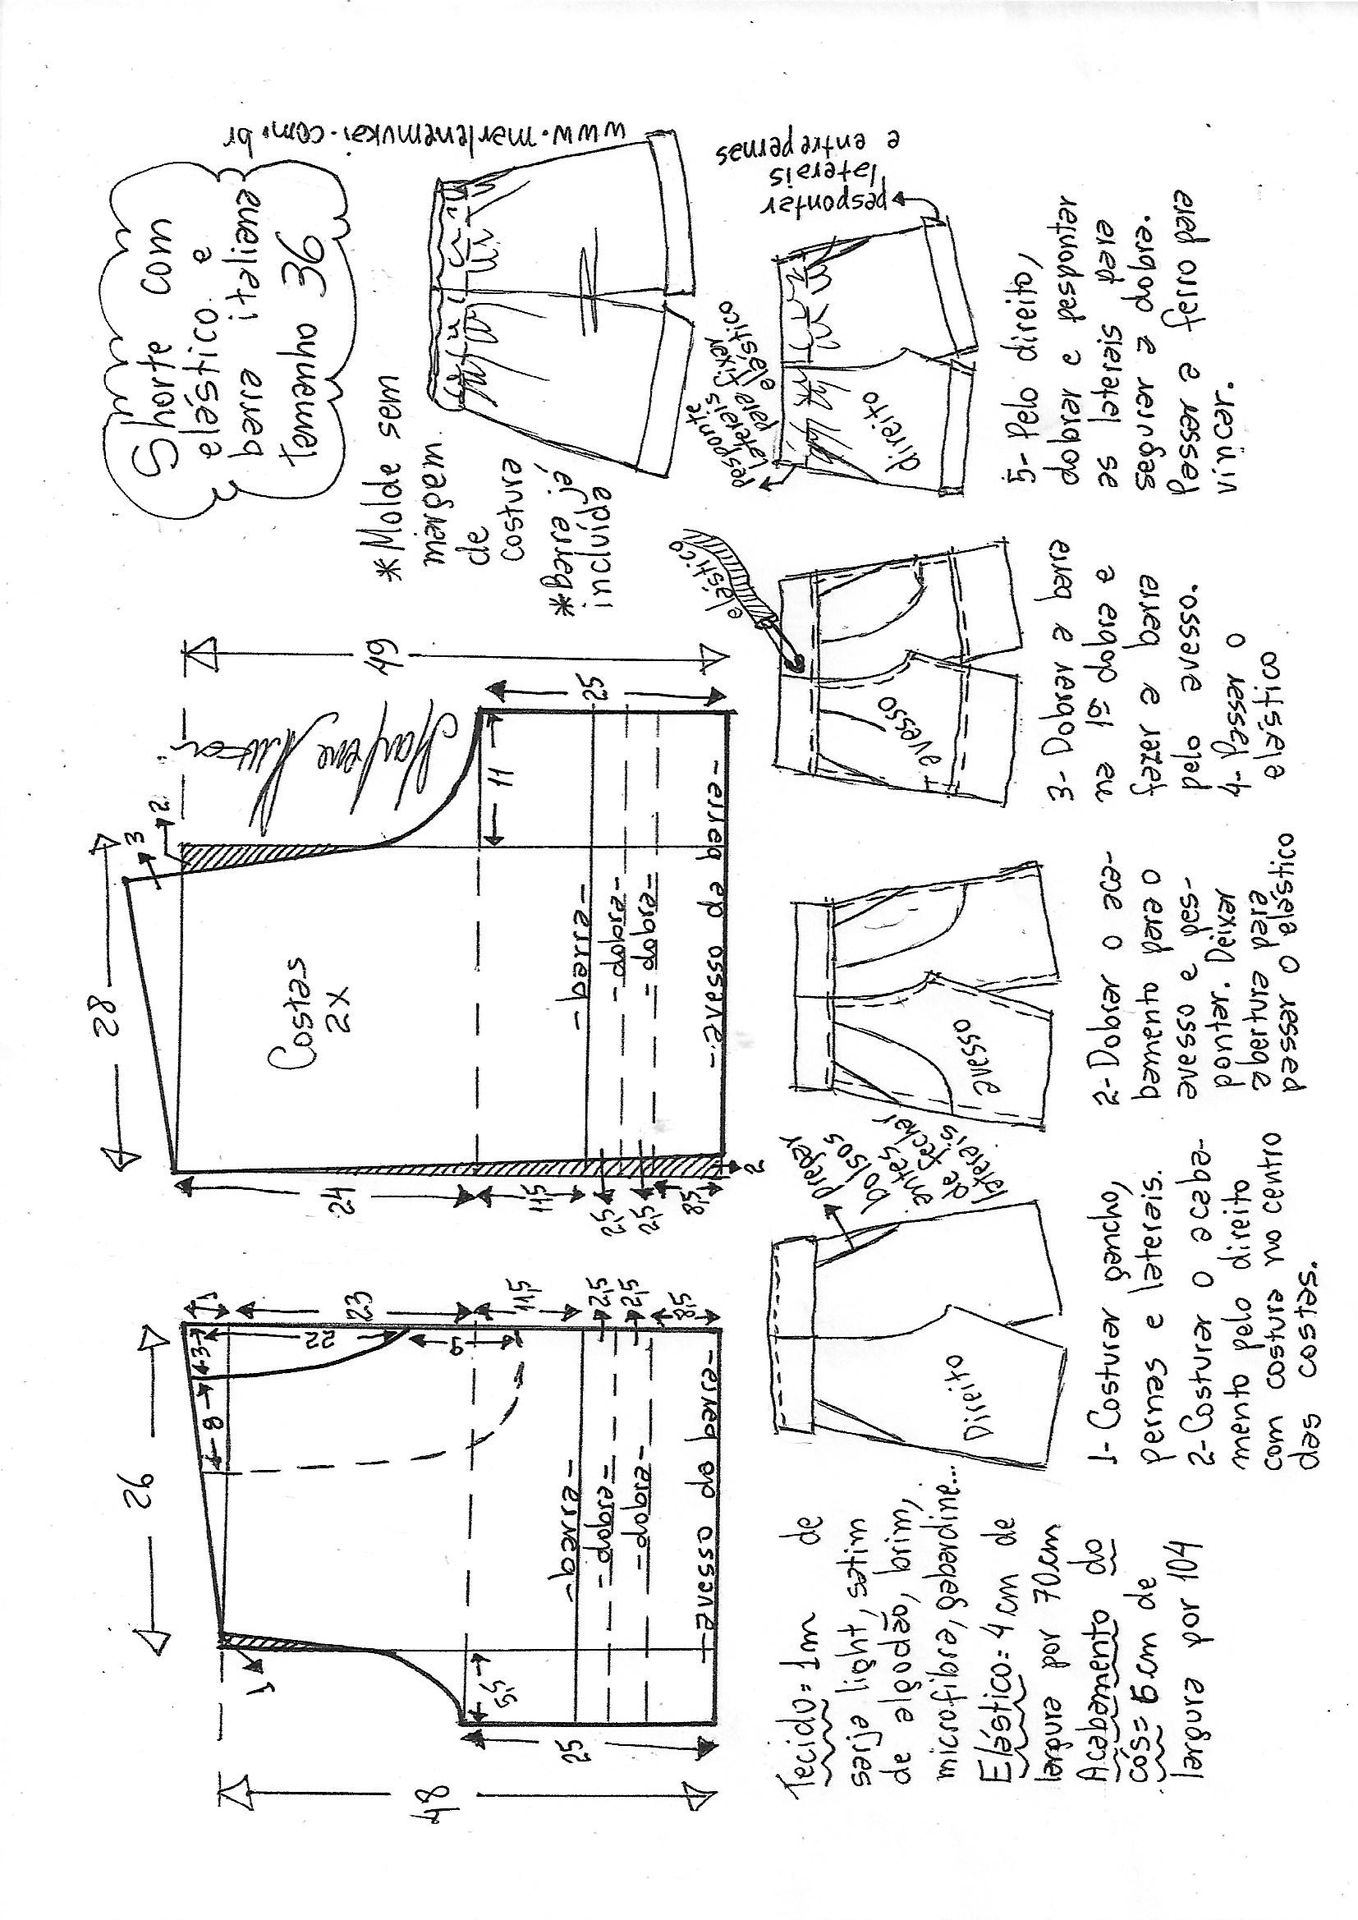 Shorte com
elástico e
barra italiana
tamanho 36
www.marlenemukai.com.br
*Molde sem
margem
de
costura
*Barra já
incluída
26
1
3
8
22
9
23
11,5
2,5
2,5
8,5
1
5,5
25
48
-barra-
-dobra-
-dobra-
-avesso da barra-
28
3
2
Costas
2X
24
11,5
2,5
2,5
8,5
2
11
25
49
-barra-
-dobra-
-dobra-
-avesso da barra-
Marlene Mukai
Tecido=1m de
sarja light, satim
de algodão, brim,
microfibra, gabardine...
Elástico= 4 cm de
largura por 70cm
Acabamento do
cós= 6cm de
largura por 104
Direito
pregar
bolsos
antes
de fechar
laterais
1- Costurar gancho,
pernas e laterais.
2- Costurar o acaba-
mento pelo direito
com costura no centro
das costas.
avesso
2-Dobrar o aca-
bamento para o
avesso e pes-
pontar. Deixar
abertura para
passar o elástico
avesso
elástico
3- Dobrar a barra
na 1ª dobra e
fazer a barra
pelo avesso.
4- Passar o
elástico
pesponte
laterais
para fixar
elástico
direito
pespontar
laterais
e entrepernas
5- Pelo direito,
dobrar e pespontar
as laterais para
segurar a dobra.
Passar a ferro para
vincar.